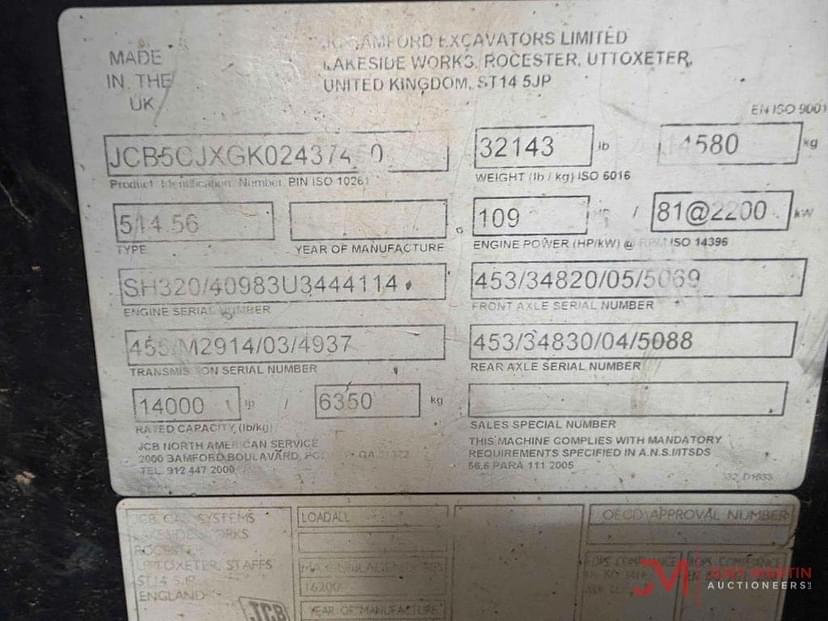 MADE
IN THE
UK
BAMFORD EXCAVATORS LIMITED
LAKESIDE WORKS, ROCESTER, UTTOXETER,
UNITED KINGDOM, ST14 5JP
EN ISO 9001
32143 lb
14580 kg
Product Identification Number PIN ISO 10261
WEIGHT (lb / kg) ISO 6016
514.56
109 HP / 81@2200 kW
TYPE
YEAR OF MANUFACTURE
ENGINE POWER (HP/kW) @ RPM ISO 14396
SH320/40983U3444114
453/34820/05/5069
ENGINE SERIAL NUMBER
FRONT AXLE SERIAL NUMBER
/M2914/03/4937
453/34830/04/5088
TRANSMISSION SERIAL NUMBER
REAR AXLE SERIAL NUMBER
14000 lb / 6350 kg
RATED CAPACITY (lb/kg)
SALES SPECIAL NUMBER
JCB NORTH AMERICAN SERVICE
2000 BAMFORD BOULAVARD,
TEL. 912 447 2000
THIS MACHINE COMPLIES WITH MANDATORY
REQUIREMENTS SPECIFIED IN A.N.S.I/ITSDS
56.6 PARA 111 2005
JCB CAB SYSTEMS
LAKESIDE WORKS
ROCESTER
UTTOXETER, STAFFS
ST14 5JP
ENGLAND
JCB
LOADALL
16200
YEAR OF MANUFACTURE
OECD APPROVAL NUMBER
ROPS COMPLIANCE
JM JEFF MARTIN
AUCTIONEERS